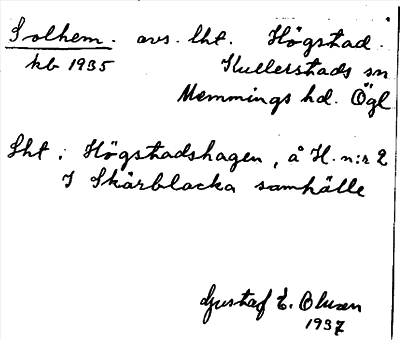 Solhem. avs. lht. Högstad.
kb 1935 Kullerstads sn
Memmings hd. Ögl
Lht i Högstadshagen, å H. n:r 2
I Skärblacka samhälle
Gustaf E. Olsson
1937